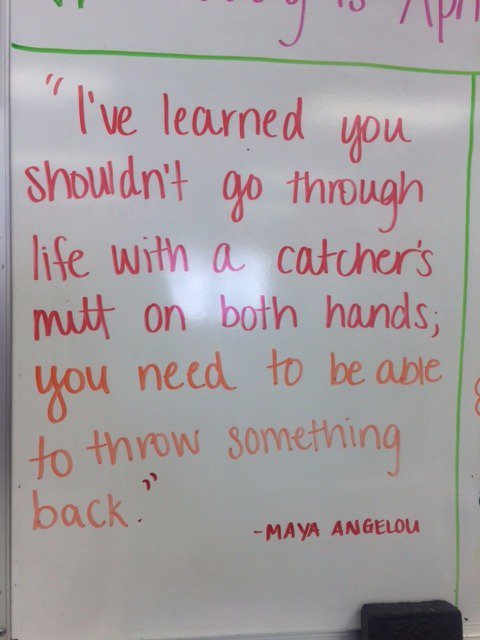 is Apri
"I've learned you
shouldn't go through
life with a catcher's
mitt on both hands;
you need to be able
to throw something
back."
-MAYA ANGELOU